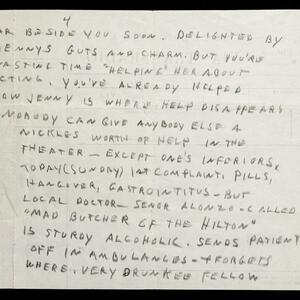 4
AR BESIDE YOU SOON. DELIGHTED BY
ENNYS GUTS AND CHARM. BUT YOU'RE
ASTING TIME "HELPING" HER ABOUT
CTING. YOU'VE ALREADY HELPED
OW JENNY IS WHERE HELP DISAPPEARS
NOBODY CAN GIVE ANYBODY ELSE A
NICKLES WORTH OF HELP IN THE
THEATER — EXCEPT ONE'S INFERIORS.
TODAY (SUNDAY) 1st COMPLAINT, PILLS,
HANGOVER, GASTROINTITUS — BUT
LOCAL DOCTOR — SENOR ALONZO — CALLED
"MAD BUTCHER OF THE HILTON"
IS STURDY ALCOHOLIC. SENDS PATIENT
OFF IN AMBULANCES — + FORGETS
WHERE. VERY DRUNKEE FELLOW